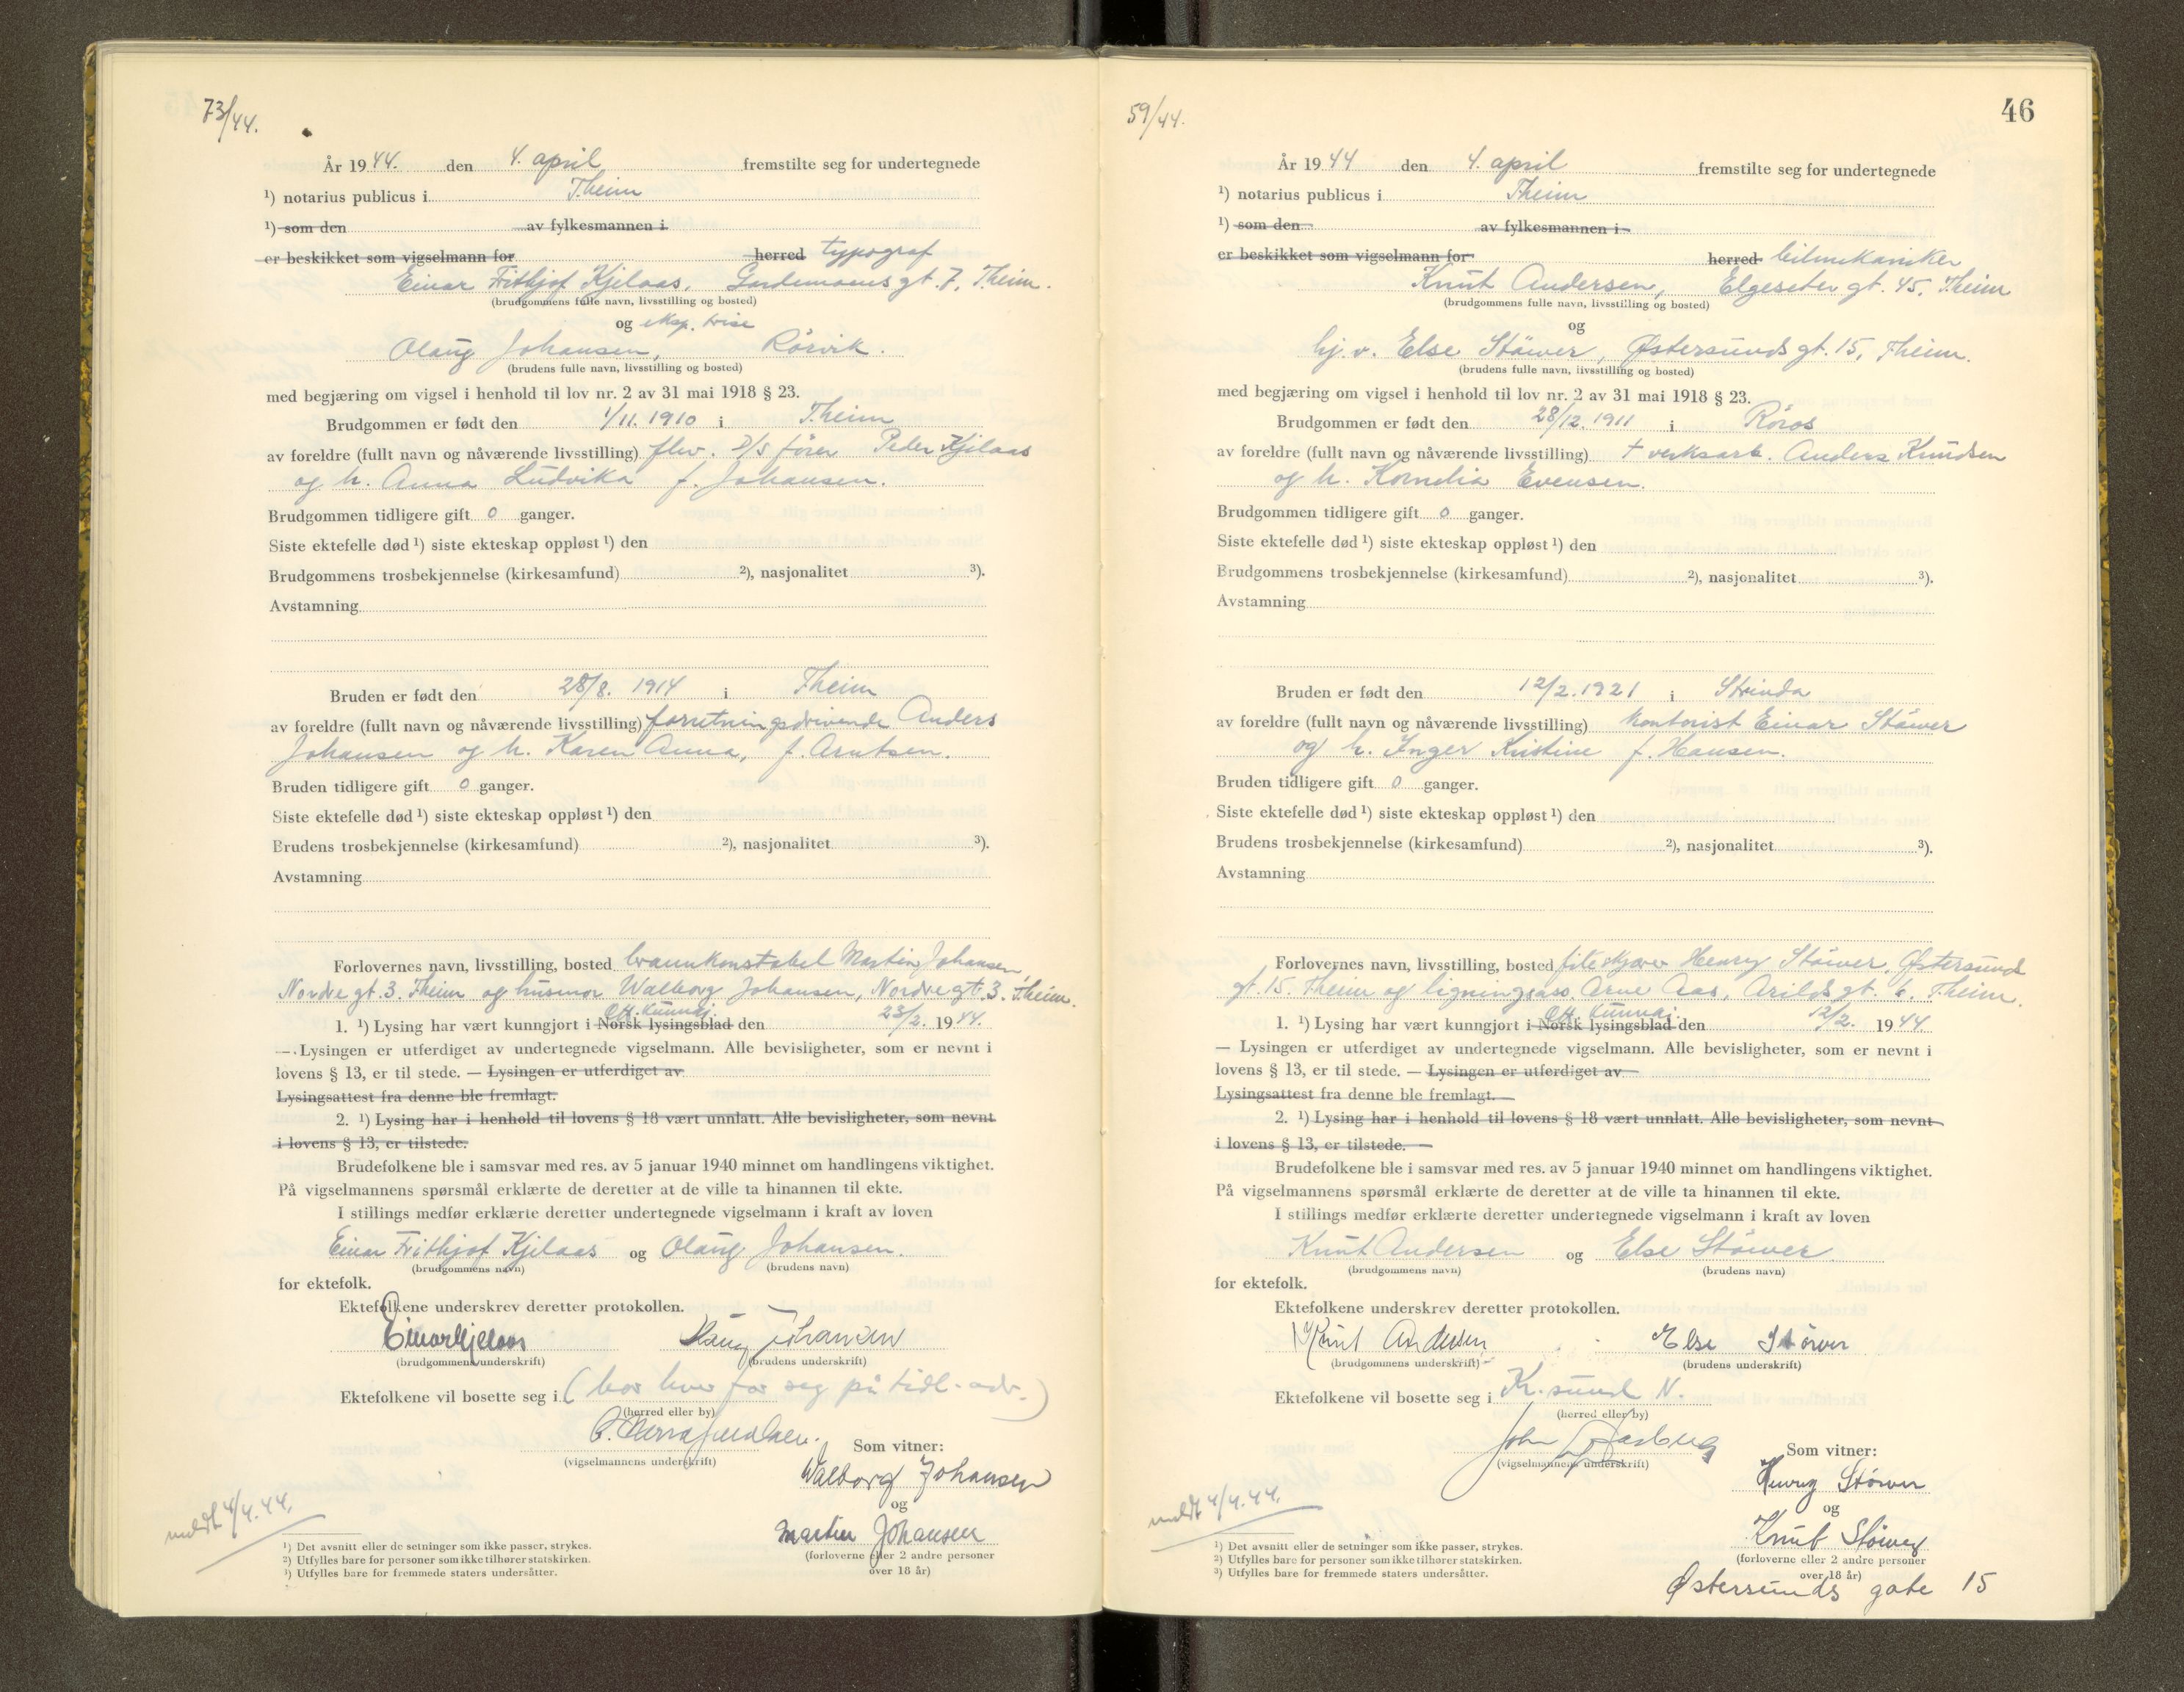 73/44.
År 1944. den 4. april fremstilte seg for undertegnede
¹) notarius publicus i Theim
¹) som den av fylkesmannen i
er beskikket som vigselmann for herred typograf
Einar Frithjof Kjelaas, gt. 7, Theim.
(brudgommens fulle navn, livsstilling og bosted)
og eksp. trise
Olaug Johansen, Rörvik.
(brudens fulle navn, livsstilling og bosted)
med begjæring om vigsel i henhold til lov nr. 2 av 31 mai 1918 § 23.
Brudgommen er født den 1/11. 1910 i Theim
av foreldre (fullt navn og nåværende livsstilling) flev. D/S fører Peder Kjelaas
og h. Anna Ludvika f. Johansen.
Brudgommen tidligere gift 0 ganger.
Siste ektefelle død ¹) siste ekteskap oppløst ¹) den
Brudgommens trosbekjennelse (kirkesamfund) ²), nasjonalitet ³).
Avstamning
Bruden er født den 28/8. 1914 i Theim
av foreldre (fullt navn og nåværende livsstilling) forretningsdrivende Anders
Johansen og h. Karen Anna, f. Arntsen.
Bruden tidligere gift 0 ganger.
Siste ektefelle død ¹) siste ekteskap oppløst ¹) den
Brudens trosbekjennelse (kirkesamfund) ²), nasjonalitet ³).
Avstamning
Forlovernes navn, livsstilling, bosted brannkonstabel Martin Johansen,
Nordregt. 3. Theim og husmor Walborg Johansen, Nordregt. 3. Theim.
Off. kunnsj.
1. ¹) Lysing har vært kunngjort i Norsk lysingsblad den 23/2. 1944.
— Lysingen er utferdiget av undertegnede vigselmann. Alle bevisligheter, som er nevnt i
lovens § 13, er til stede. — Lysingen er utferdiget av
Lysingsattest fra denne ble fremlagt.
2. ¹) Lysing har i henhold til lovens § 18 vært unnlatt. Alle bevisligheter, som nevnt
i lovens § 13, er tilstede.
Brudefolkene ble i samsvar med res. av 5 januar 1940 minnet om handlingens viktighet.
På vigselmannens spørsmål erklærte de deretter at de ville ta hinannen til ekte.
I stillings medfør erklærte deretter undertegnede vigselmann i kraft av loven
Einar Frithjof Kjelaas og Olaug Johansen.
(brudgommens navn) (brudens navn)
for ektefolk.
Ektefolkene underskrev deretter protokollen.
Einar Kjelaas Olaug Johansen
(brudgommens underskrift) (brudens underskrift)
Ektefolkene vil bosette seg i (bor hver for seg på tidl. adr.)
(herred eller by)
(vigselmannens underskrift)
Som vitner:
Walborg Johansen
og
Martin Johansen
(forloverne eller 2 andre personer
over 18 år)
meldt 4/4. 44.
¹) Det avsnitt eller de setninger som ikke passer, strykes.
²) Utfylles bare for personer som ikke tilhører statskirken.
³) Utfylles bare for fremmede staters undersåtter.
59/44.
46
År 1944 den 4. april fremstilte seg for undertegnede
¹) notarius publicus i Theim
¹) som den av fylkesmannen i
er beskikket som vigselmann for herred bilmekaniker
Knut Andersen, Elgeseter gt. 45, Theim
(brudgommens fulle navn, livsstilling og bosted)
og
hj. v. Else Störver, Østersunds gt. 15, Theim.
(brudens fulle navn, livsstilling og bosted)
med begjæring om vigsel i henhold til lov nr. 2 av 31 mai 1918 § 23.
Brudgommen er født den 28/12. 1911 i Röros
av foreldre (fullt navn og nåværende livsstilling) + verksarb. Anders Knudsen
og h. Kornelia Evensen.
Brudgommen tidligere gift 0 ganger.
Siste ektefelle død ¹) siste ekteskap oppløst ¹) den
Brudgommens trosbekjennelse (kirkesamfund) ²), nasjonalitet ³).
Avstamning
Bruden er født den 12/2. 1921 i Strinda
av foreldre (fullt navn og nåværende livsstilling) kontorist Einar Störver
og h. Inger Kristine f. Hansen.
Bruden tidligere gift 0 ganger.
Siste ektefelle død ¹) siste ekteskap oppløst ¹) den
Brudens trosbekjennelse (kirkesamfund) ²), nasjonalitet ³).
Avstamning
Forlovernes navn, livsstilling, bosted Henry Störver, Østersund
gt. 15. Theim og ligningsass. Arne Aas, Arilds gt. 6. Theim.
Off. kunnsj.
1. ¹) Lysing har vært kunngjort i Norsk lysingsblad den 12/2. 1944.
— Lysingen er utferdiget av undertegnede vigselmann. Alle bevisligheter, som er nevnt i
lovens § 13, er til stede. — Lysingen er utferdiget av
Lysingsattest fra denne ble fremlagt.
2. ¹) Lysing har i henhold til lovens § 18 vært unnlatt. Alle bevisligheter, som nevnt
i lovens § 13, er tilstede.
Brudefolkene ble i samsvar med res. av 5 januar 1940 minnet om handlingens viktighet.
På vigselmannens spørsmål erklærte de deretter at de ville ta hinannen til ekte.
I stillings medfør erklærte deretter undertegnede vigselmann i kraft av loven
Knut Andersen og Else Störver
(brudgommens navn) (brudens navn)
for ektefolk.
Ektefolkene underskrev deretter protokollen.
Knut Andersen Else Störver
(brudgommens underskrift) (brudens underskrift)
Ektefolkene vil bosette seg i Kr.sund N.
(herred eller by)
John
(vigselmannens underskrift)
Som vitner:
Henry Störver
og
Knut Störver
(forloverne eller 2 andre personer
over 18 år)
Østersunds gate 15
meldt 4/4. 44.
¹) Det avsnitt eller de setninger som ikke passer, strykes.
²) Utfylles bare for personer som ikke tilhører statskirken.
³) Utfylles bare for fremmede staters undersåtter.